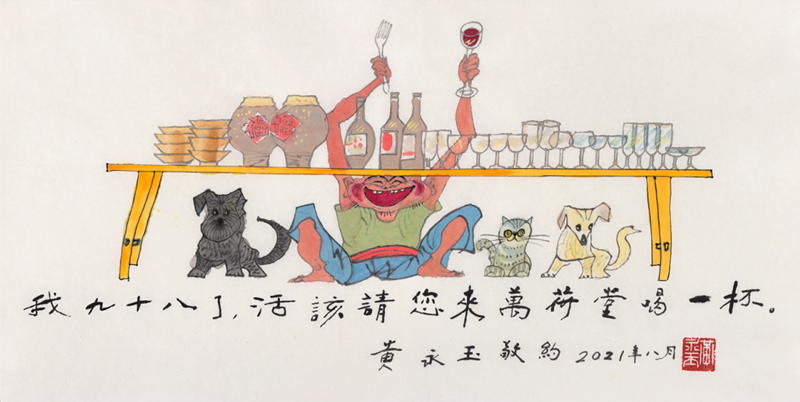 我九十八了，活該請您來萬荷堂喝一杯。
黃永玉敬約 2021年八月